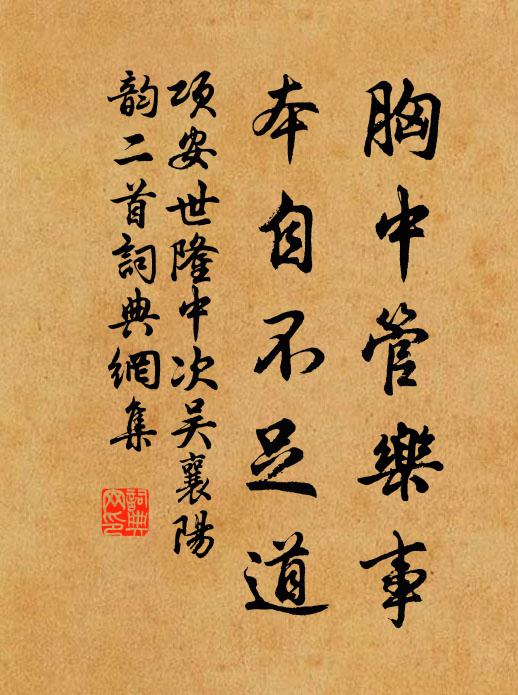 胸中管樂事
本自不足道
項安世隆中次吴襄陽
韵二首詞典網集
詞典
网印